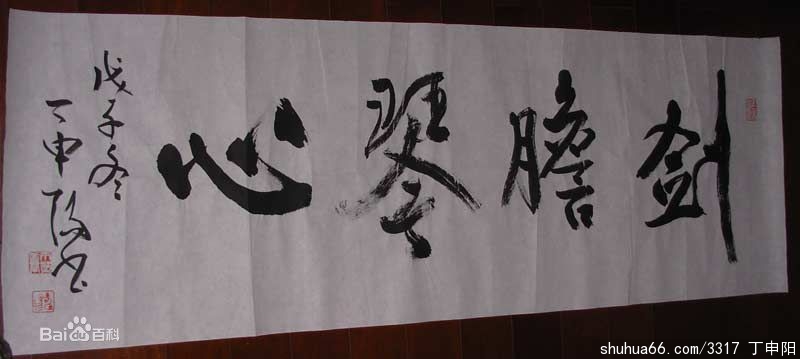 剑膽琴心
戊子冬
丁申阳书
Baidu百科
shuhua66.com/3317 丁申阳